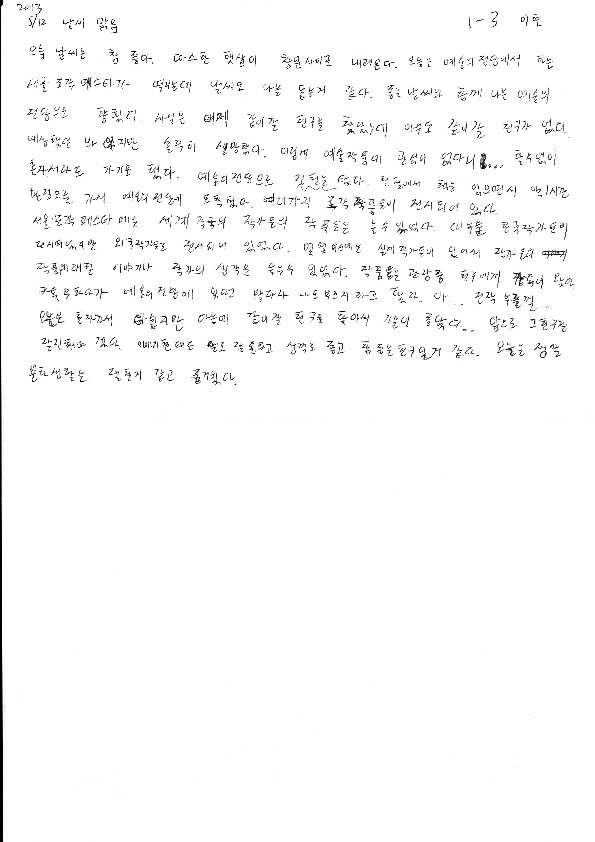 2013
5/12 날씨 맑음 1-3 이현
오늘 날씨는 참 좋다. 따스한 햇살이 창문사이로 내려온다. 오늘은 예술의 전당에서 하는
서울 조각 페스티가 열리는데 날씨도 나를 돕는거 같다. 좋은 날씨와 함께 나는 예술의
전당으로 향했다. 사실은 어제 같이갈 친구를 찾았는데 아무도 같이갈 친구가 없다.
예상했던 바 였지만 솔직히 실망했다. 이렇게 예술작품에 관심이 없다니... 할수없이
혼자서라도 가기로 했다. 예술의전당으로 전철을 탔다. 전철에서 책을 읽으면서 약1시간
가서 예술의전당에 도착했다. 여러가지 조각 작품들이 전시되어 있다.
서울·조각 페스타에는 세계 각국의 작가들의 작품들을 볼 수 있었다. 대부분 한국작가들이
전시되있지만 외국작가들도 전시되어 있었다. 몇몇 부스에는 실제 작가들이 있어서 작가들의
작품에대한 이야기나 작가의 생각을 들을수 있었다. 작품들을 관람중 친구에게 왔다
예술의전당에 있다고 나도 부르지 라고 했다. 아... 전학 부를껄..
오늘은 혼자가서 아쉽지만 다음에 같이갈 친구를 찾아서 기분이 좋았다... 앞으로 그친구랑
잘 성격도 좋고 같다. 오늘은 정말
문화생활을 잘한거 같고 즐거웠다.